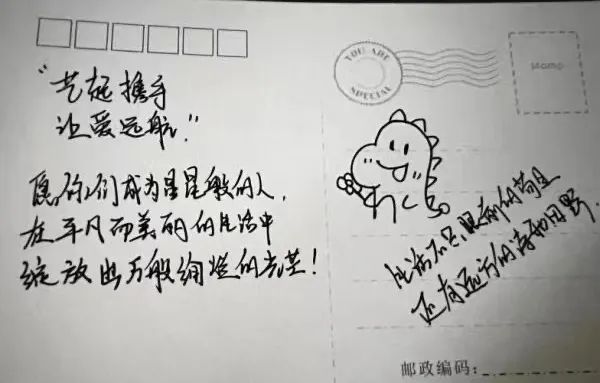 “艺起携手
让爱远航”
愿你们成为星星般的人，
在平凡而美丽的生活中
绽放出万般绚烂的光芒！
YOU ARE
SPECIAL
stamp
生活不只眼前的苟且
还有远方的诗和田野.
邮政编码: